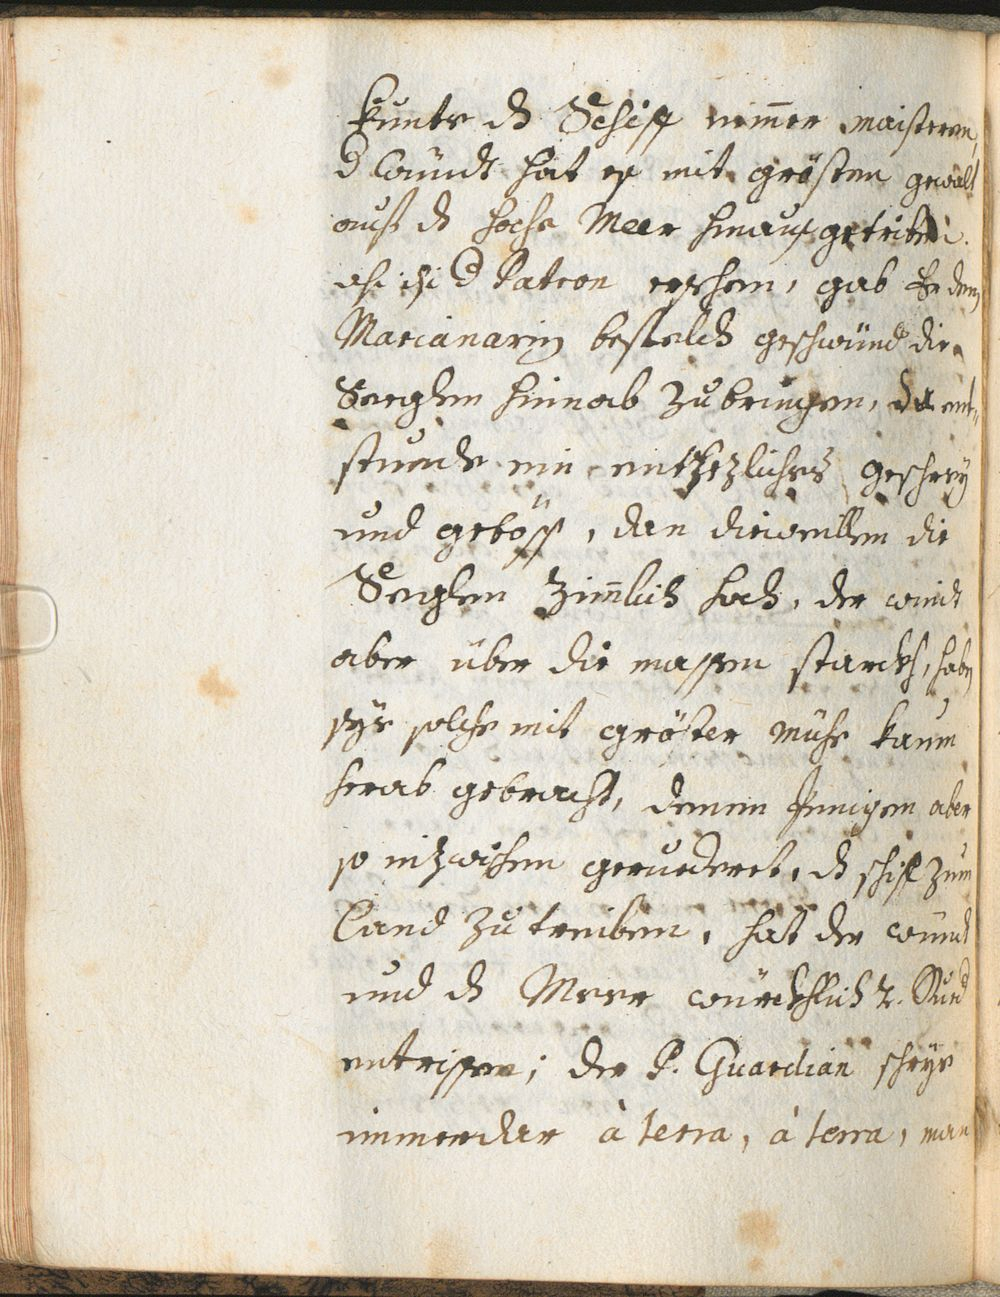 kunte dz Schiff nimmer maisteren,
d windt hat es mit grösten gewalt
auf dz hoche Meer hinauß getriben.
als dise d Patron ersehen, gab Er den
Marianarin befelch geschwünd die
Seeglen hinab zu bringen, da ent-
stunde ein entsezliches geschrey
und getöß, dan dieweillen die
Seeglen zimlich hoch, der windt
aber über die massen starckh, haben
sye solche mit gröster mühe kaum
herab gebracht, denen Jenigen aber
so inzwischen gerudereet, dz schiff zum
Land zu treiben, hat der windt
und dz Meer würckhlich 2. Rued
entrissen; der P. Guardian schrye
immerdar à terra, à terra, man